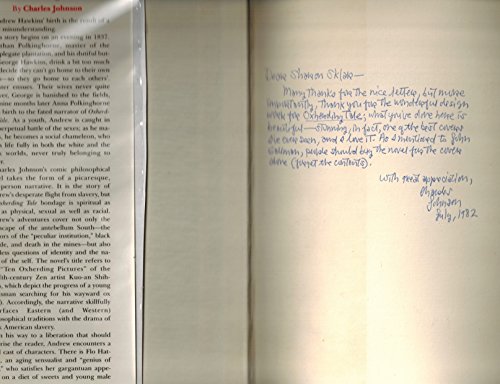 By Charles Johnson
drew Hawkins' birth is the result of a
misunderstanding.
story begins on an evening in 1837.
than Polkinghorne, master of the
pplegate plantation, and his dutiful but-
George Hawkins, drink a bit too much
decide they can't go home to their own
—so they go to each others'.
ter ensues. Their wives never quite
ver, George is banished to the fields,
nine months later Anna Polkinghorne
birth to the fated narrator of Oxherd-
Tale. As a youth, Andrew is caught in
perpetual battle of the sexes; as he ma-
he becomes a social chameleon, who
life fully in both the white and the
k worlds, never truly belonging to
arles Johnson's comic philosophical
l takes the form of a picaresque,
person narrative. It is the story of
ew's desperate flight from slavery, but
xherding Tale bondage is spiritual as
as physical, sexual as well as racial.
ew's adventures cover not only the
scape of the antebellum South—the
ors of the "peculiar institution," black
de, and death in the mines—but also
less questions of identity and the na-
of the self. The novel's title refers to
"Ten Oxherding Pictures" of the
fth-century Zen artist Kuo-an Shih-
, which depict the progress of a young
sman searching for his wayward ox
). Accordingly, the narrative skillfully
rfaces Eastern (and Western)
osophical traditions with the drama of
k American slavery.
n his way to a liberation that should
rise the reader, Andrew encounters a
l cast of characters. There is Flo Hat-
, an aging sensualist and "genius of
," who satisfies her gargantuan appe-
on a diet of sweets and young male
Dear Sharon Sklar—
Many thanks for the nice letter, but more
importantly, thank you for the wonderful design
work for Oxherding Tale; what you've done here is
beautiful—stunning, in fact, one of the best covers
I've ever seen, and I love it. As I mentioned to John
Gallman, people should buy the novel for the cover
alone (forget the contents).
With great appreciation,
Charles
Johnson
July, 1982